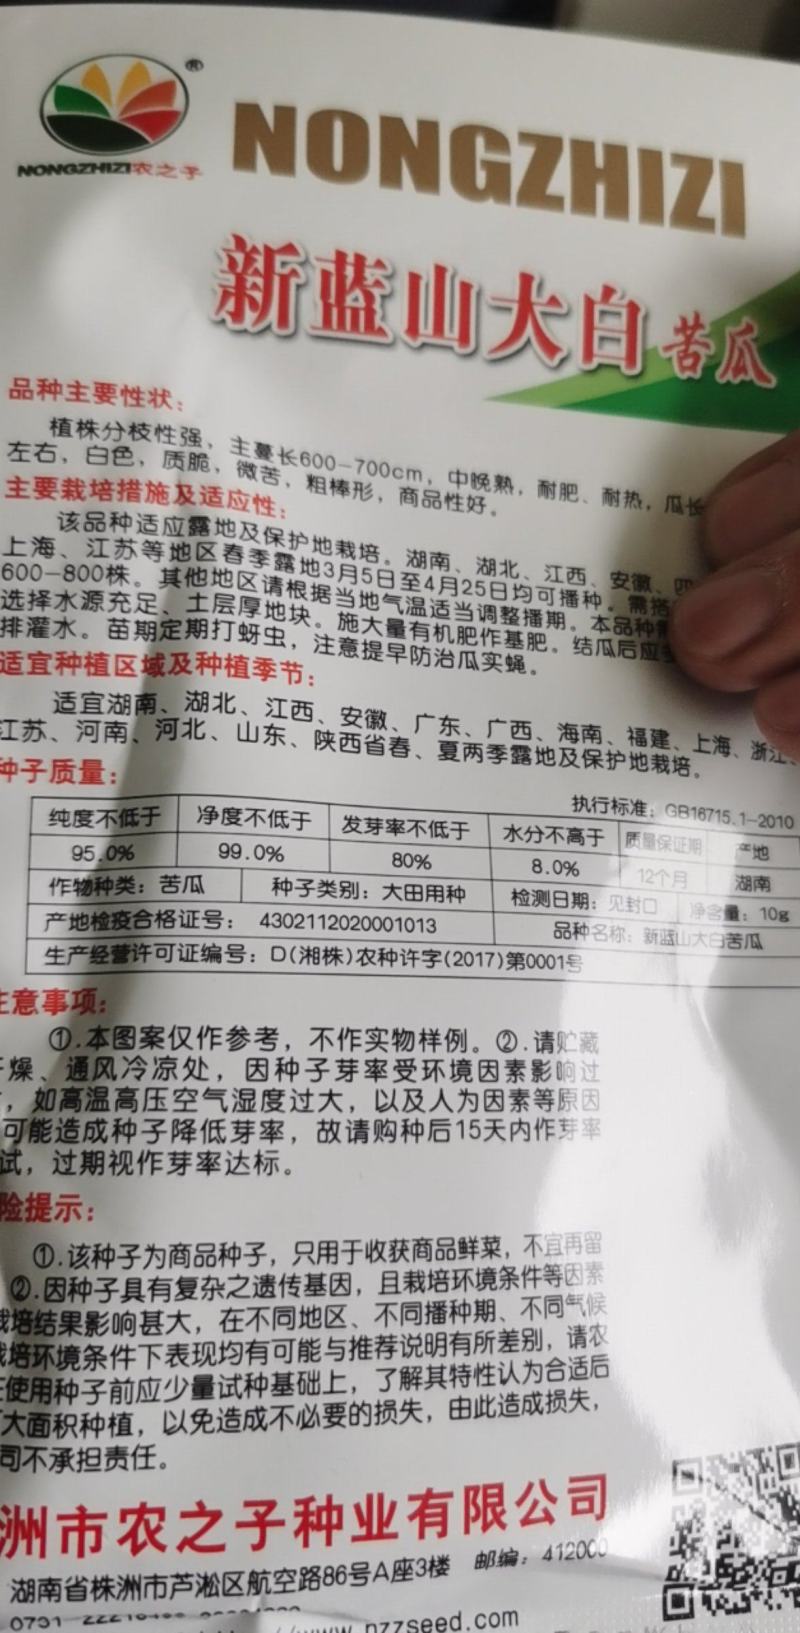 ®
NONGZHIZI农之子
NONGZHIZI
新蓝山大白苦瓜
品种主要性状：
植株分枝性强，主蔓长600-700cm，中晚熟，耐肥、耐热，瓜长
左右，白色，质脆，微苦，粗棒形，商品性好。
主要栽培措施及适应性：
该品种适应露地及保护地栽培。湖南、湖北、江西、安徽、四
上海、江苏等地区春季露地3月5日至4月25日均可播种。需搭
600-800株。其他地区请根据当地气温适当调整播期。本品种需
选择水源充足、土层厚地块。施大量有机肥作基肥。结瓜后应
排灌水。苗期定期打蚜虫，注意提早防治瓜实蝇。
适宜种植区域及种植季节：
适宜湖南、湖北、江西、安徽、广东、广西、海南、福建、上海、浙江、
江苏、河南、河北、山东、陕西省春、夏两季露地及保护地栽培。
种子质量：
执行标准：GB16715.1-2010
纯度不低于 净度不低于 发芽率不低于 水分不高于 质量保证期 产地
95.0% 99.0% 80% 8.0% 12个月 湖南
作物种类：苦瓜 种子类别：大田用种 检测日期：见封口 净含量：10g
产地检疫合格证号：4302112020001013 品种名称：新蓝山大白苦瓜
生产经营许可证编号：D(湘株)农种许字(2017)第0001号
注意事项：
①.本图案仅作参考，不作实物样例。②.请贮藏
干燥、通风冷凉处，因种子芽率受环境因素影响过
，如高温高压空气湿度过大，以及人为因素等原因
可能造成种子降低芽率，故请购种后15天内作芽率
试，过期视作芽率达标。
险提示：
①.该种子为商品种子，只用于收获商品鲜菜，不宜再留
②.因种子具有复杂之遗传基因，且栽培环境条件等因素
栽培结果影响甚大，在不同地区、不同播种期、不同气候
栽培环境条件下表现均有可能与推荐说明有所差别，请农
在使用种子前应少量试种基础上，了解其特性认为合适后
大面积种植，以免造成不必要的损失，由此造成损失，
司不承担责任。
洲市农之子种业有限公司
湖南省株洲市芦淞区航空路86号A座3楼 邮编：412000
0731
www.nzzseed.com